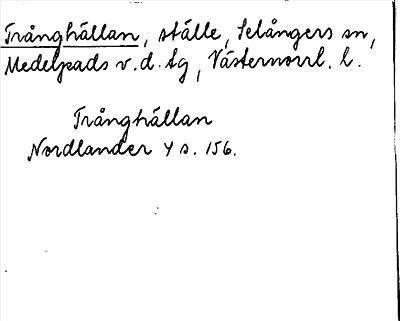 Trånghällan, ställe, Selångers sn,
Medelpads v. d. tg, Västernorrl. l.
Trånghällan
Nordlander 4 s. 156.